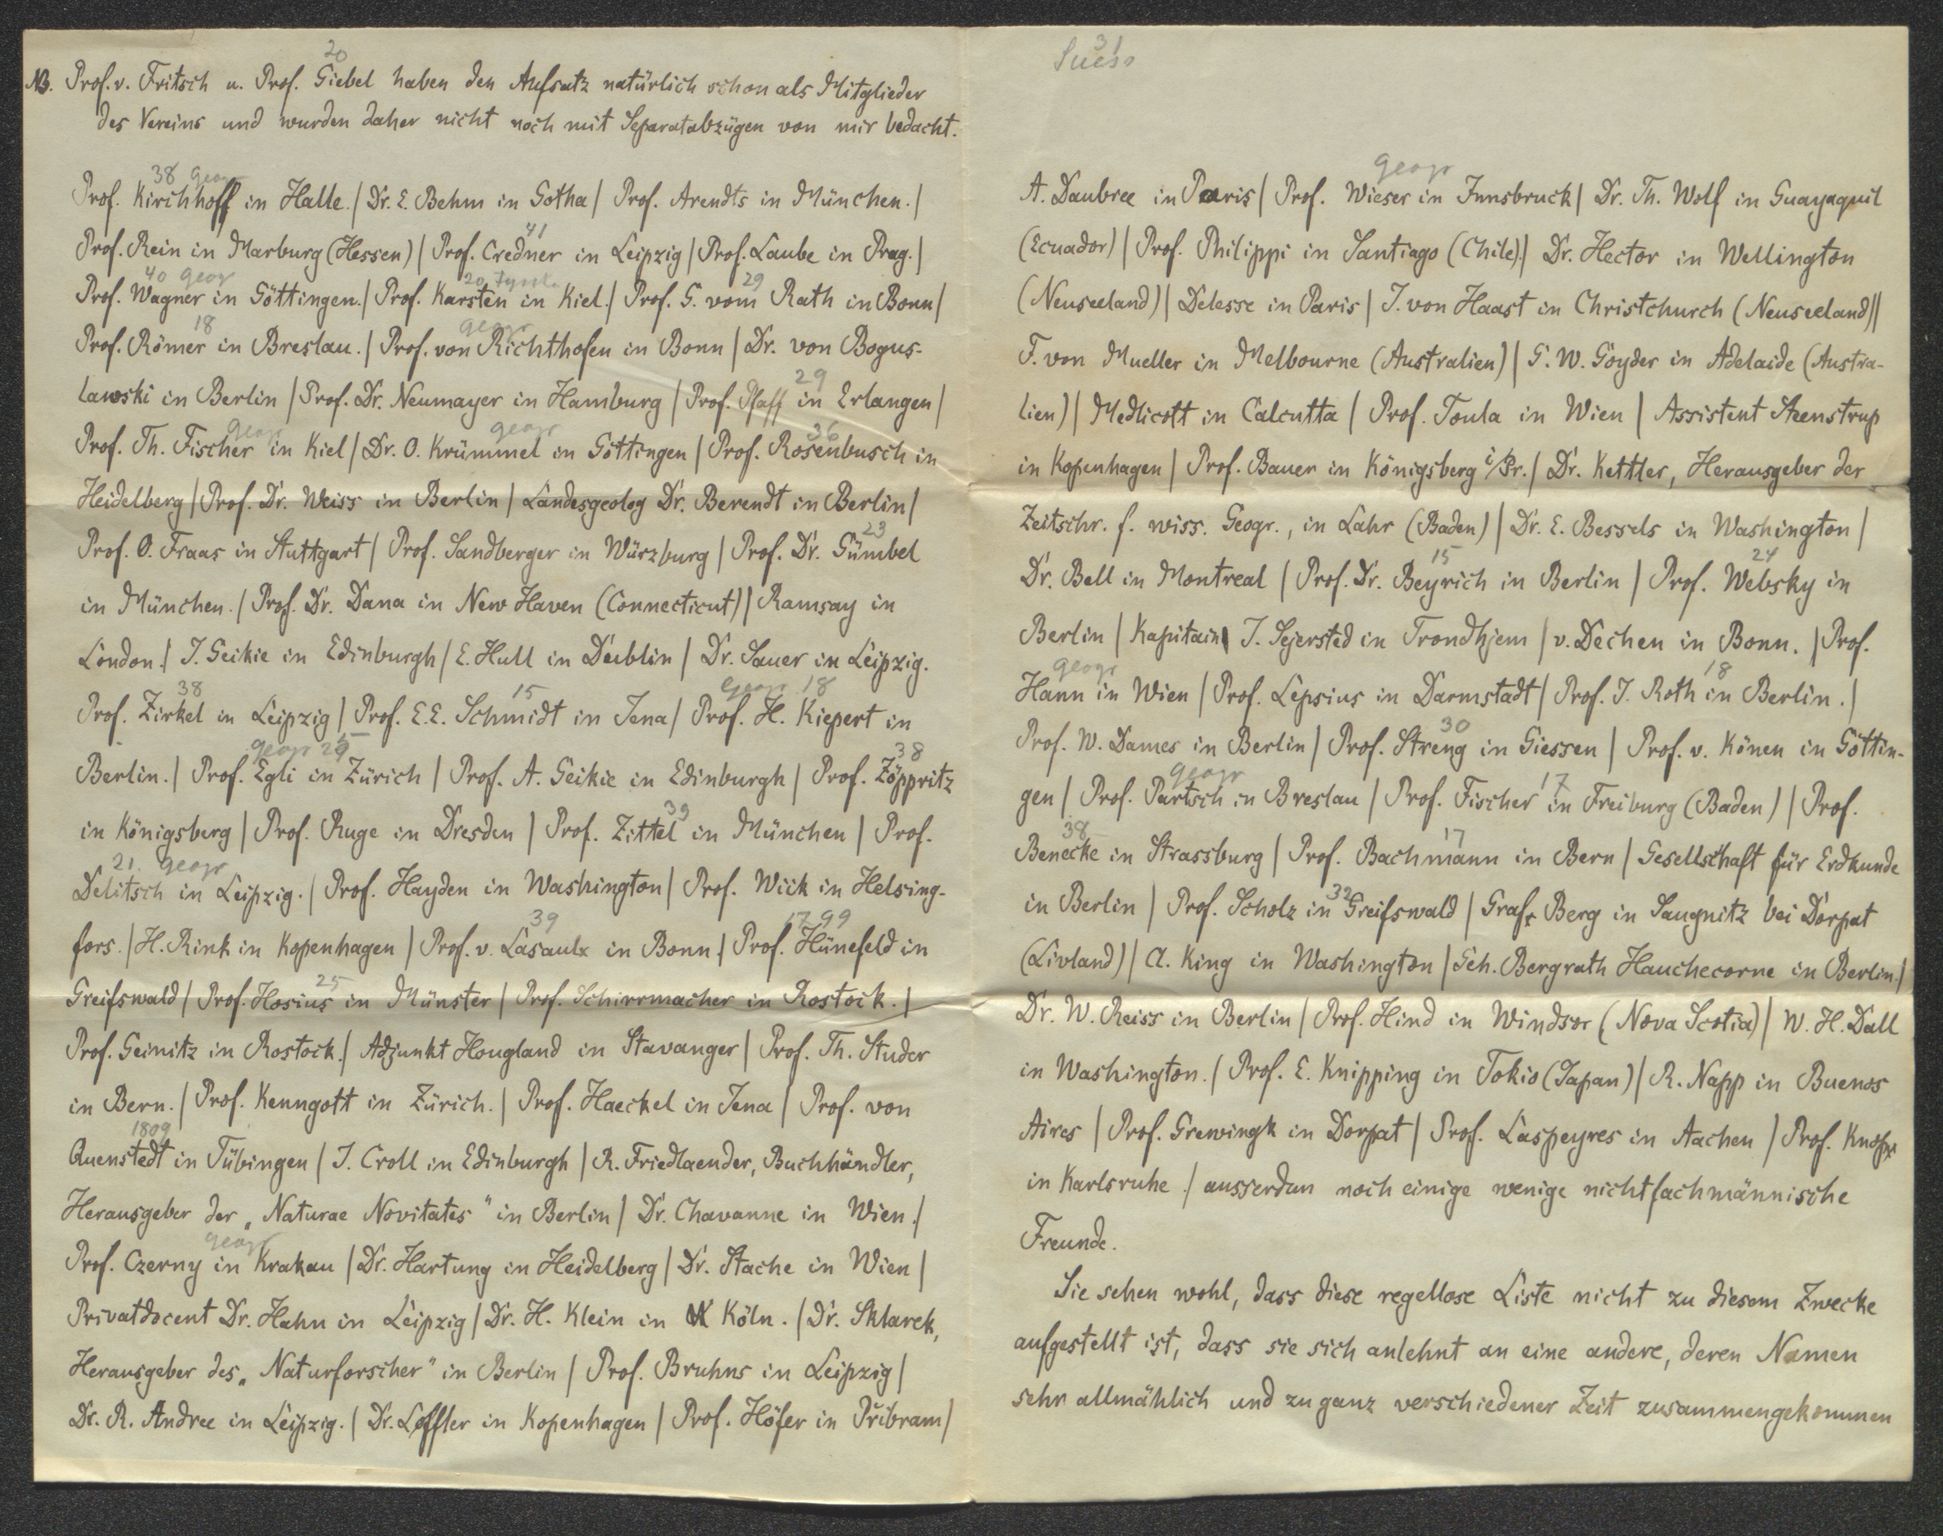 20
NB. Prof. v. Fritsch u. Prof. Giebel haben den Aufsatz natürlich schon als Mitglieder
des Vereins und wurden daher nicht noch mit Separatabzügen von mir bedacht.
38 Geogr
Prof. Kirchhoff in Halle. | Dr. E. Behm in Gotha | Prof. Arendts in München. |
41
Prof. Rein in Marburg (Hessen) | Prof. Credner in Leipzig | Prof. Laube in Prag. |
40 geogr 20 29
Prof. Wagner in Göttingen. | Prof. Karsten in Kiel. | Prof. G. vom Rath in Bonn |
18 geogr
Prof. Römer in Breslau. | Prof. von Richthofen in Bonn | Dr. von Bogus-
29
lawski in Berlin | Prof. Dr. Neumayer in Hamburg | Prof. Pfaff in Erlangen |
geogr geogr 36
Prof. Th. Fischer in Kiel | Dr. O. Krümmel in Göttingen | Prof. Rosenbusch in
Heidelberg | Prof. Dr. Weiss in Berlin | Landesgeolog Dr. Berendt in Berlin |
23
Prof. O. Fraas in Stuttgart | Prof. Sandberger in Würzburg | Prof. Dr. Gümbel
in München. | Prof. Dr. Dana in New Haven (Connecticut) | Ramsay in
London. | J. Geikie in Edinburgh | E. Hull in Dublin | Dr. Sauer in Leipzig.
38 15 Geogr 18
Prof. Zirkel in Leipzig | Prof. E. E. Schmidt in Jena | Prof. H. Kiepert in
geogr 25 38
Berlin. | Prof. Egli in Zürich | Prof. A. Geikie in Edinburgh | Prof. Zöppritz
39
in Königsberg | Prof. Ruge in Dresden | Prof. Zittel in München | Prof.
21. geogr
Delitsch in Leipzig. | Prof. Hayden in Washington | Prof. Wiik in Helsing-
39 1799
fors. | H. Rink in Kopenhagen | Prof. v. Lasaulx in Bonn | Prof. Hünefeld in
25
Greifswald | Prof. Hosius in Münster | Prof. Schirrmacher in Rostock. |
Prof. Geinitz in Rostock. | Adjunkt Hougland in Stavanger | Prof. Th. Studer
in Bern. | Prof. Kenngott in Zürich. | Prof. Haeckel in Jena | Prof. von
1809
Quenstedt in Tübingen | J. Croll in Edinburgh | R. Friedlaender, Buchhändler,
Herausgeber der „Naturae Novitates" in Berlin | Dr. Chavanne in Wien. |
geogr
Prof. Czerny in Krakau | Dr. Hartung in Heidelberg | Dr. Stache in Wien |
Privatdocent Dr. Hahn in Leipzig | Dr. H. Klein in Köln. | Dr. Sklarek,
Herausgeber des „Naturforscher" in Berlin | Prof. Bruhns in Leipzig |
Dr. R. Andree in Leipzig. | Dr. Löffler in Kopenhagen | Prof. Höfer in Přibram |
31
Suess
geogr
A. Daubree in Paris | Prof. Wieser in Innsbruck | Dr. Th. Wolf in Guayaquil
(Ecuador) | Prof. Philippi in Santiago (Chile). | Dr. Hector in Wellington
(Neuseeland) | Delesse in Paris | J. von Haast in Christchurch (Neuseeland) |
F. von Mueller in Melbourne (Australien) | G. W. Goyder in Adelaide (Austra-
lien) | Medlicott in Calcutta | Prof. Toula in Wien | Assistent Steenstrup
in Kopenhagen | Prof. Bauer in Königsberg i/Pr. | Dr. Kettler, Herausgeber der
Zeitschr. f. wiss. Geogr., in Lahr (Baden) | Dr. E. Bessels in Washington |
15 24
Dr. Bell in Montreal | Prof. Dr. Beyrich in Berlin | Prof. Websky in
Berlin | Kapitain J. Sejersted in Trondhjem | v. Dechen in Bonn. | Prof.
geogr 18
Hann in Wien | Prof. Lepsius in Darmstadt | Prof. J. Roth in Berlin. |
30
Prof. W. Dames in Berlin | Prof. Streng in Giessen | Prof. v. Könen in Göttin-
geogr 17
gen | Prof. Partsch in Breslau | Prof. Fischer in Freiburg (Baden) | Prof.
38 17
Benecke in Strassburg | Prof. Bachmann in Bern | Gesellschaft für Erdkunde
32
in Berlin | Prof. Scholz in Greifswald | Graf Berg in Saugnitz bei Dorpat
(Livland) | Cl. King in Washington | Geh. Bergrath Hauchecorne in Berlin |
Dr. W. Reiss in Berlin | Prof. Hind in Windsor (Nova Scotia) | W. H. Dall
in Washington. | Prof. E. Knipping in Tokio (Japan) | R. Napp in Buenos
Aires | Prof. Grewingk in Dorpat | Prof. Laspeyres in Aachen | Prof. Knop
in Karlsruhe. | ausserdem noch einige wenige nichtfachmännische
Freunde.
Sie sehen wohl, dass diese regellose Liste nicht zu diesem Zwecke
aufgestellt ist, dass sie sich anlehnt an eine andere, deren Namen
sehr allmählich und zu ganz verschiedener Zeit zusammengekommen